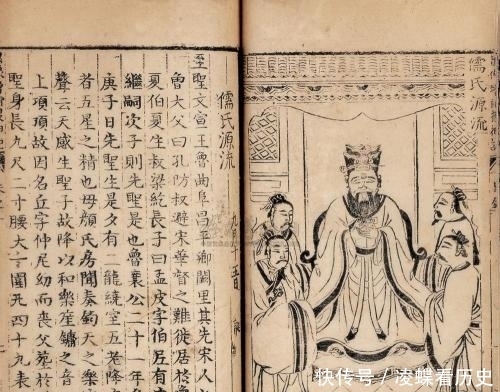 儒氏源流
儒氏源流
至聖文宣王魯曲阜昌平鄉闕里其先宋人
魯大父曰孔防叔避宋華督之難徙居
夏伯夏生叔梁紇長子曰孟皮字伯
繼嗣次子則先聖是也魯襄公二十一年
庚子日先聖生是夕有二龍繞室五老降
者五星之精也母顏氏房聞奏鈞天之樂
聲云天感生聖子故降以和樂笙鏞之音
上頂項故因名丘字仲尼幼而喪父葬於
聖身長九尺二寸腰大十圍凡四十九表
快传号/凌蝶看历史